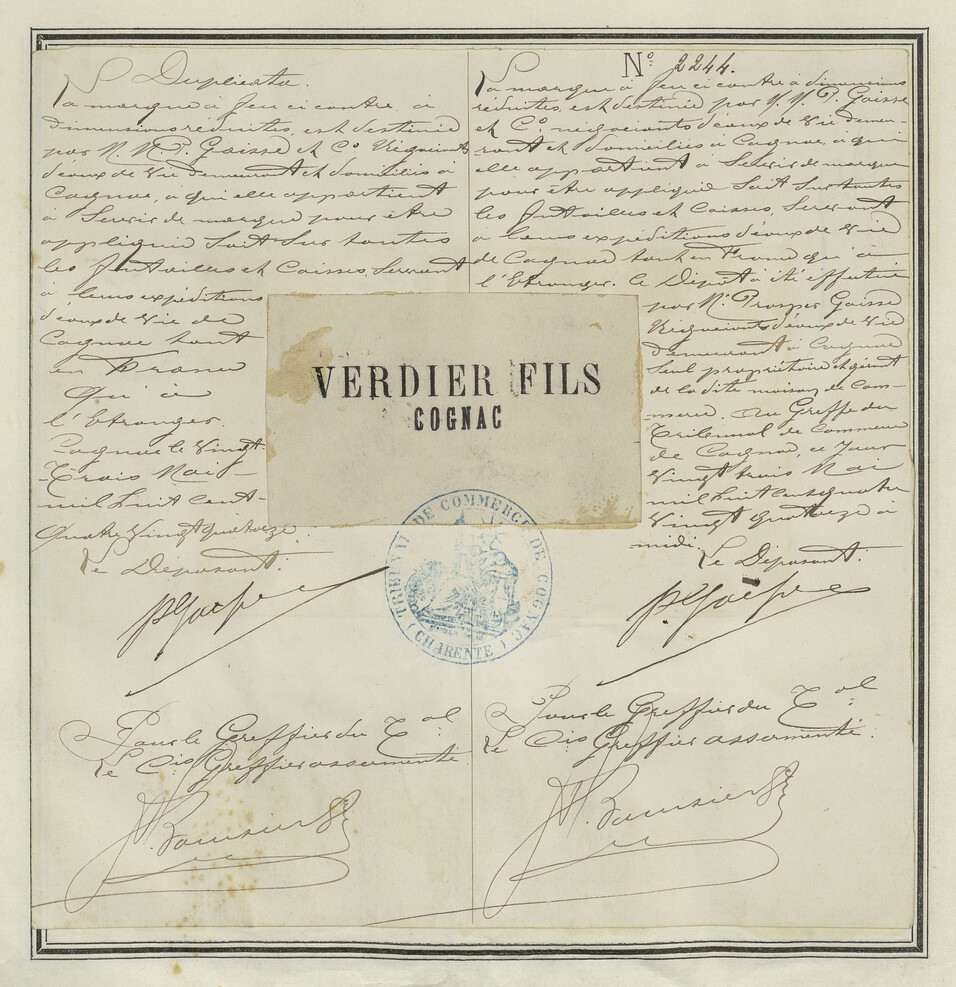 Duplicata.
La marque à feu ci contre, à
dimensions réduites, est destinée
par M. M. P. Gaisse et Co Négociants
d'eaux de vie demeurant et domiciliés à
Cognac, à qui elle appartient
à Servir de marque pour être
appliquée Soit Sur toutes
les futailles et Caisses, Servant
à leurs expéditions
d'eaux de Vie de
Cognac tant
en France
qu'à
l'Etranger.
Cognac le Vingt-
Trois Mai
mil huit cent-
Quatre Vingt quatorze.
Le Déposant.
Pour le Greffier du Tal
Le Cis Greffier assermenté
No 2244.
La marque à feu ci contre à dimensions
réduites, est destinée par M. M. P. Gaisse
et Co négociants d'eaux de Vie demeu-
rant et domiciliés à Cognac, à qui
elle appartient à Servir de marque
pour être appliquée Soit Sur toutes
les futailles et Caisses, Servant
à leurs expéditions d'eaux de Vie
de Cognac tant en France qu'à
l'Etranger. Ce Dépôt a été effectué
par Mr. Prosper Gaisse
Négociant d'eaux de Vie
demeurant à Cognac
Seul propriétaire et gérant
de la dite maison de Com-
merce. Au Greffe du
Tribunal de Commerce
de Cognac, ce Jour
Vingt trois Mai
mil huit cent quatre
Vingt quatorze à
midi.
Le Déposant.
Pour le Greffier du Tal
Le Cis Greffier assermenté.
VERDIER FILS
COGNAC
TRIBUNAL DE COMMERCE DE COGNAC
(CHARENTE)